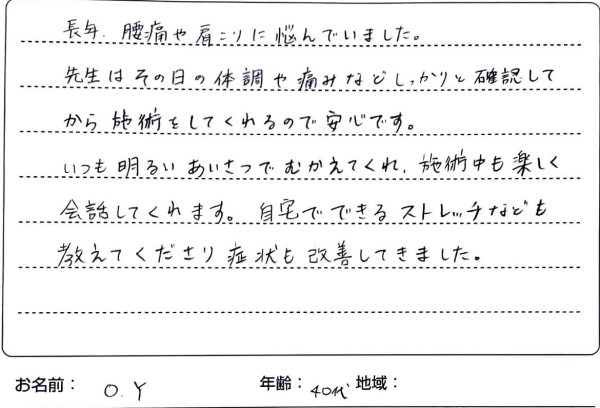 長年、腰痛や肩こりに悩んでいました。
先生はその日の体調や痛みなどしっかりと確認して
から施術をしてくれるので安心です。
いつも明るいあいさつでむかえてくれ、施術中も楽しく
会話してくれます。自宅でできるストレッチなども
教えてくださり症状も改善してきました。
お名前： O.Y 年齢： 40代 地域：